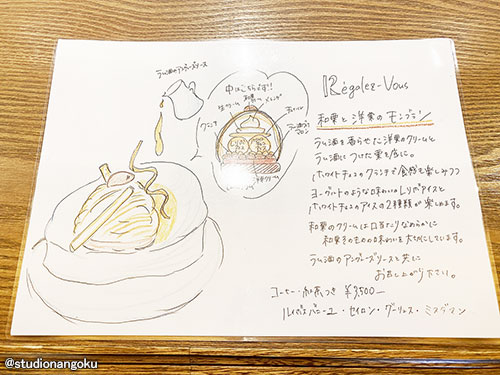 ラム酒のアングレーズソース
中はこちらです!!
生クリーム
クランチ
Régalez-Vous
和栗と洋栗のモンブラン
ラム酒を香らせた洋栗のクリームと
ラム酒につけた栗を底に。
ホワイトチョコのクランチで食感を楽しみつつ
ヨーグルトのような味わいの
ホワイトチョコのアイスの2種類が楽しめます。
和栗のクリームは口当たりなめらかに
和栗そのものの味わいを大切にしています。
ラム酒のアングレーズソースと共に
お召し上がり下さい。
コーヒー・紅茶つき ¥3,500-
セイロン・
@studionangoku